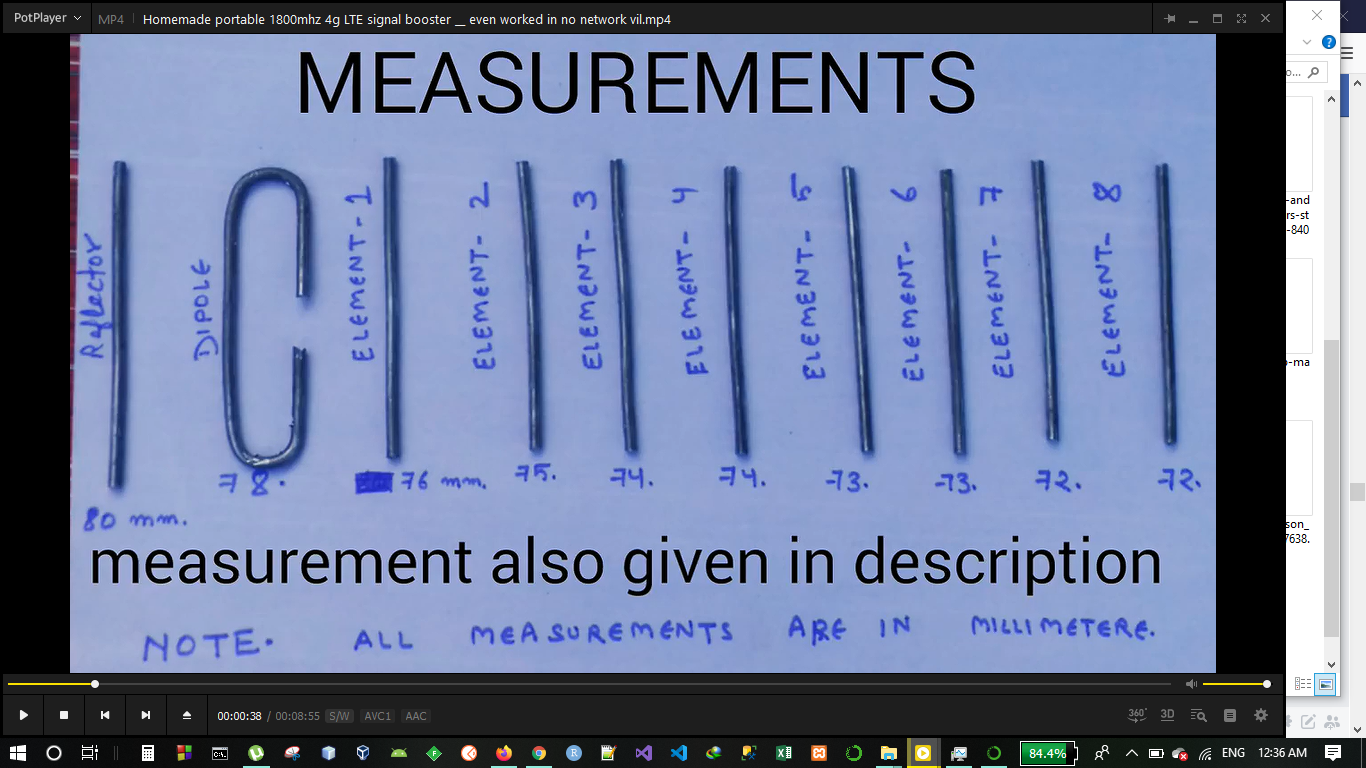 PotPlayer MP4 Homemade portable 1800mhz 4g LTE signal booster __ even worked in no network vil.mp4
MEASUREMENTS
Reflector
DIPOLE
ELEMENT-1
ELEMENT-2
ELEMENT-3
ELEMENT-4
ELEMENT-5
ELEMENT-6
ELEMENT-7
ELEMENT-8
80 mm.
78.
76 mm.
75.
74.
74.
73.
73.
72.
72.
measurement also given in description
NOTE. ALL MEASUREMENTS ARE IN MILLIMETERE.
o...
-and
rs-st
-840
o-ma
son_
7638.
00:00:38 / 00:08:55 S/W AVC1 AAC
360° 3D
84.4% ENG 12:36 AM